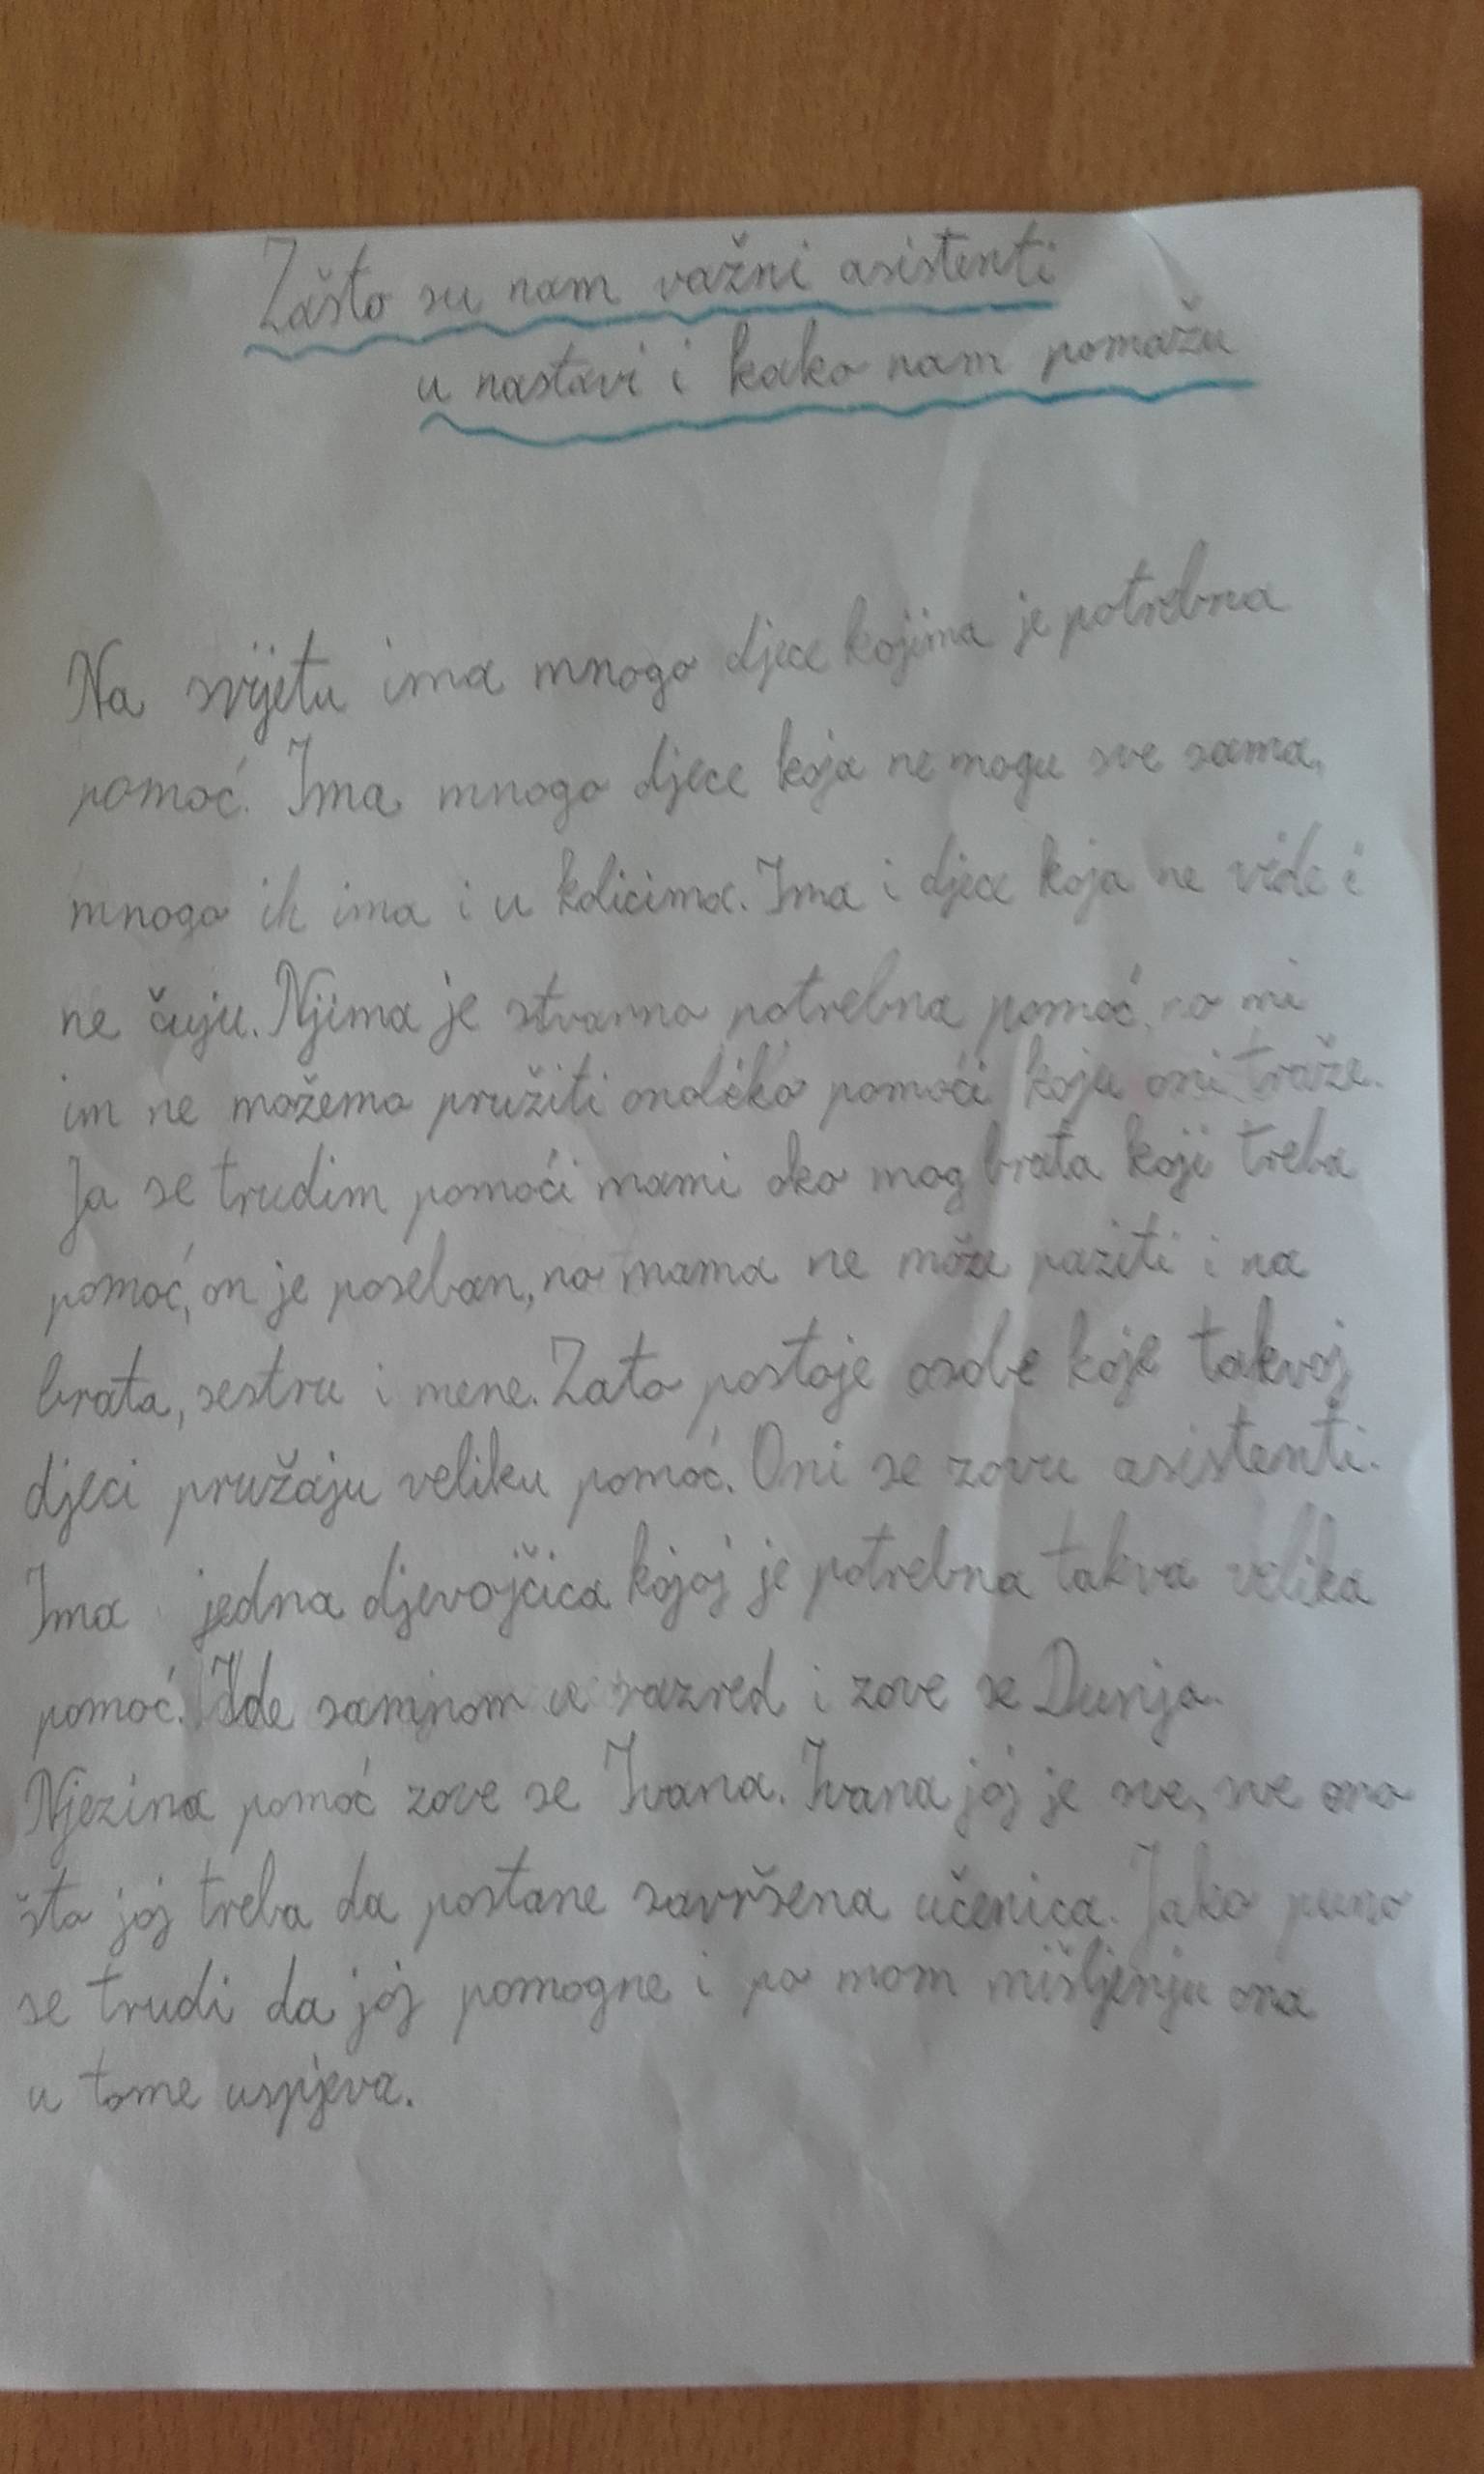 Zašto su nam važni asistenti
u nastavi i kako nam pomažu
Na svijetu ima mnogo djece kojima je potrebna
pomoć. Ima mnogo djece koja ne mogu sve sama,
mnogo ih ima i u kolicima. Ima i djece koja ne vide i
ne čuju. Njima je stvarno potrebna pomoć, no mi
im ne možemo pružiti onoliko pomoći koju oni traže.
Ja se trudim pomoći mami oko mog brata koji treba
pomoć, on je poseban, no mama ne može paziti i na
brata, sestru i mene. Zato postoje osobe koje takvoj
djeci pružaju veliku pomoć. Oni se zovu asistenti.
Ima jedna djevojčica kojoj je potrebna takva velika
pomoć. Ide samnom u razred i zove se Dunja.
Njezina pomoć zove se Ivana. Ivana joj je sve, sve ono
što joj treba da postane savršena učenica. Jako puno
se trudi da joj pomogne i po mom mišljenju ona
u tome uspjeva.